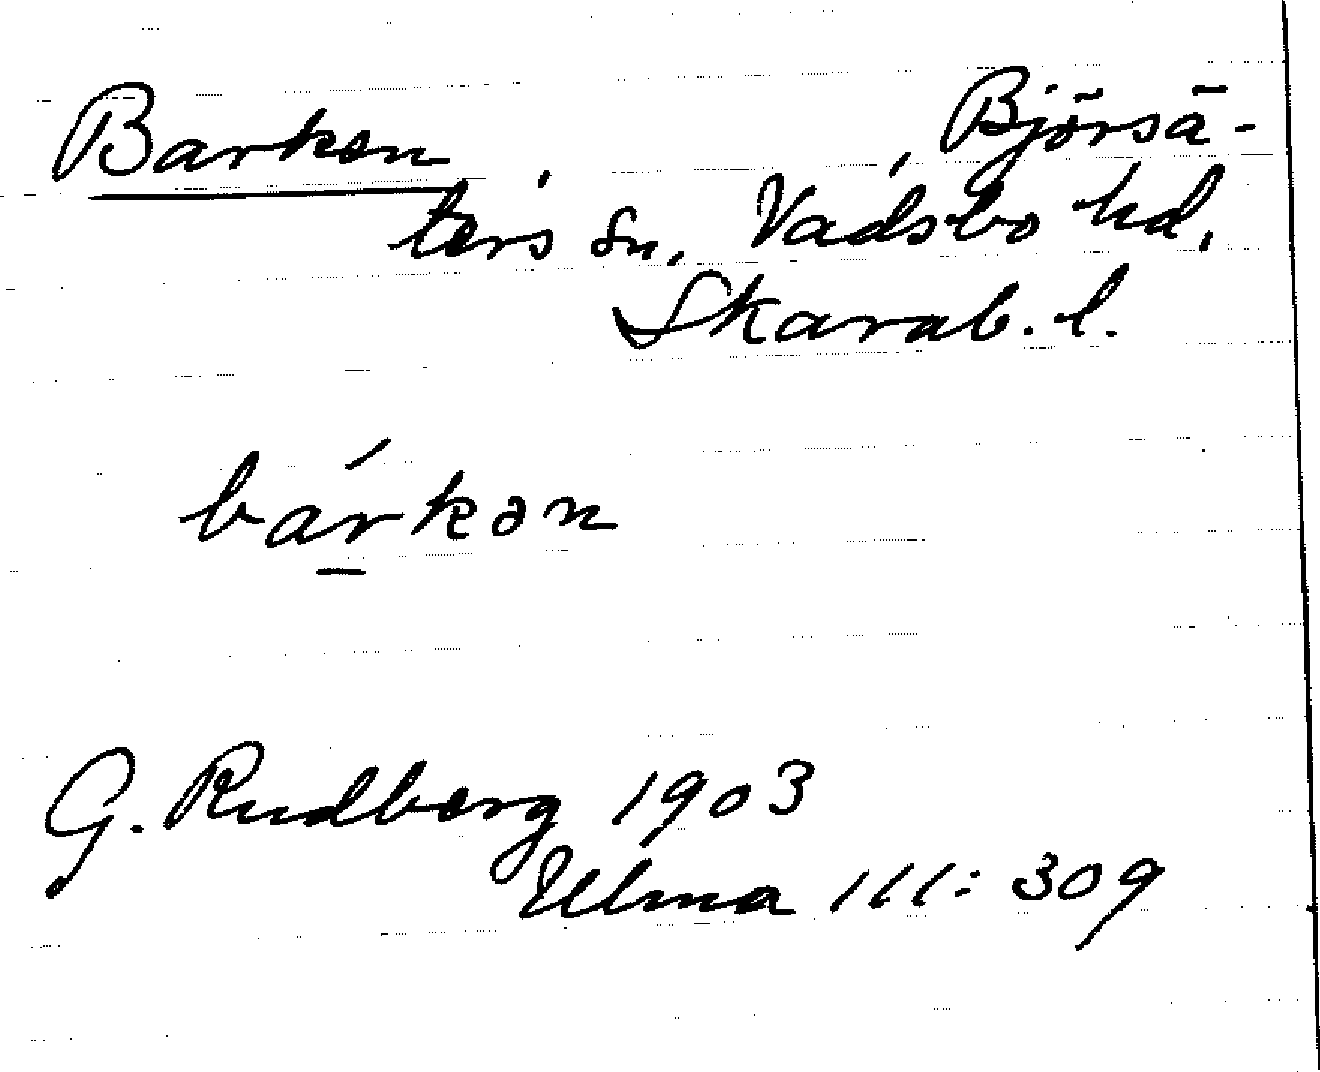 Barken , , Björsä-
ters sn, Vadsbo hd,
Skarab. l.
bárkən
G. Rudberg 1903
Ulma 111: 309